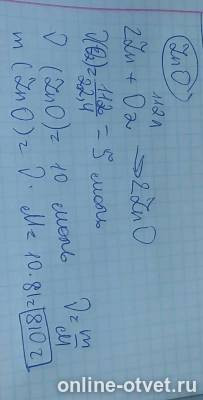 ZnO
112л
2Zn + O₂ → 2ZnO
ν(O₂) = 112/22,4 = 5 моль
ν (ZnO) = 10 моль
ν = m/M
m (ZnO) = ν · M = 10 · 81 = 810 г
online-otvet.ru